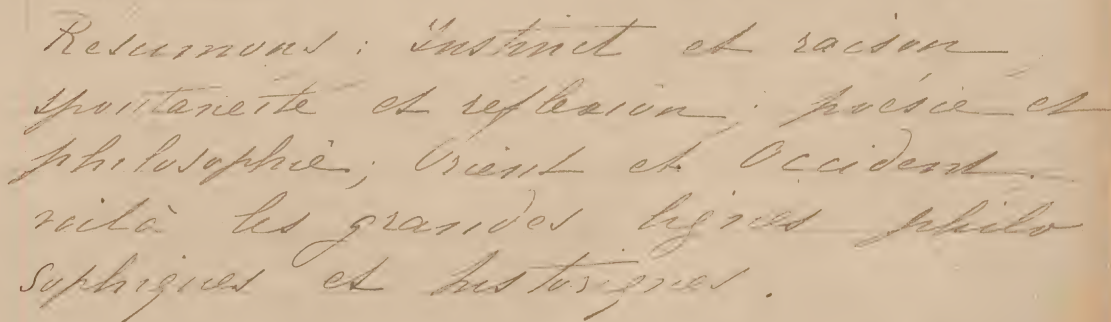 Resumons : instinct et raison,
spontaneité et reflexion ; poésie et
philosophie ; Orient et Occident.
voilà les grandes lignes philo
sophiques et historiques.